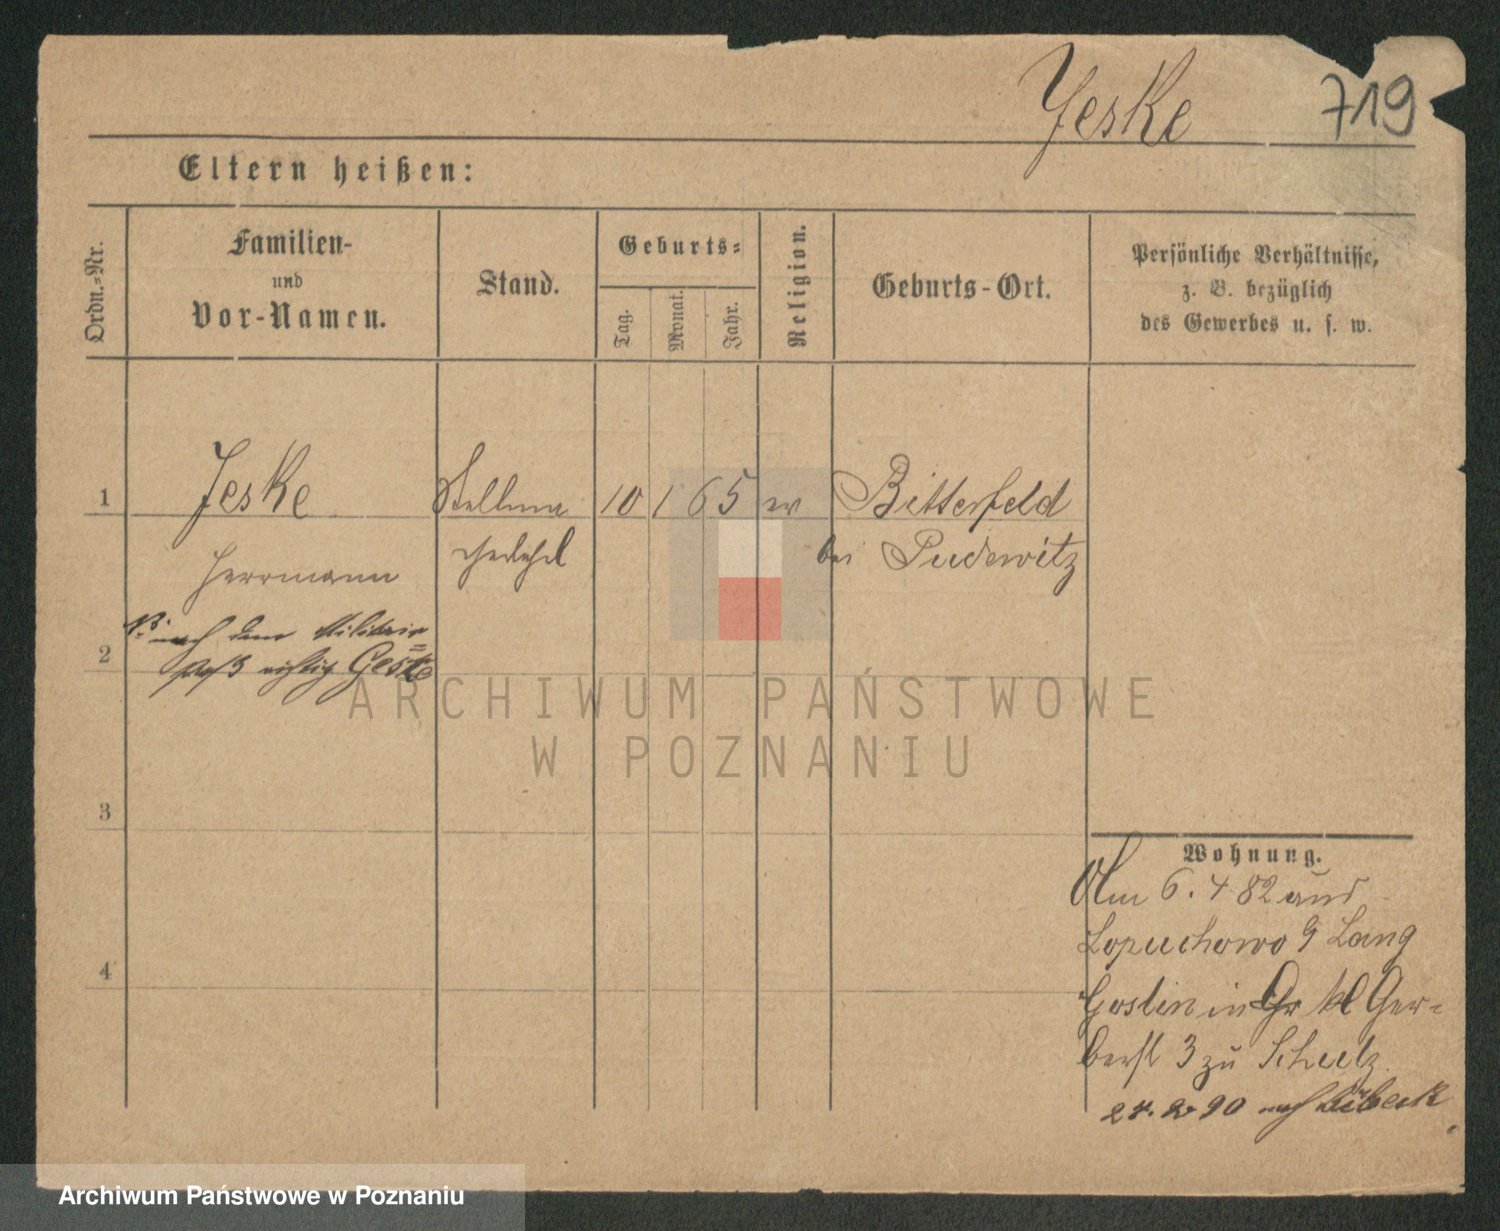 Jeske 719
Eltern heißen:
Ordn.-Nr.
Familien-
und
Vor-Namen.
Stand.
Geburts-
Tag.
Monat.
Jahr.
Religion.
Geburts-Ort.
Persönliche Verhältnisse,
z. B. bezüglich
des Gewerbes u. s. w.
1 Jeske Stellma 10 1 65 ev Bitterfeld
Herrmann bei Pudewitz
nach dem Militair
2 paß richtig Geske
3
4
Wohnung.
Am 6. 4 82 aus
Lopuchowo Lang
Goslin in Gr kl Ger-
berst 3 zu Schulz
90 nach Lübeck
ARCHIWUM PAŃSTWOWE
W POZNANIU
Archiwum Państwowe w Poznaniu